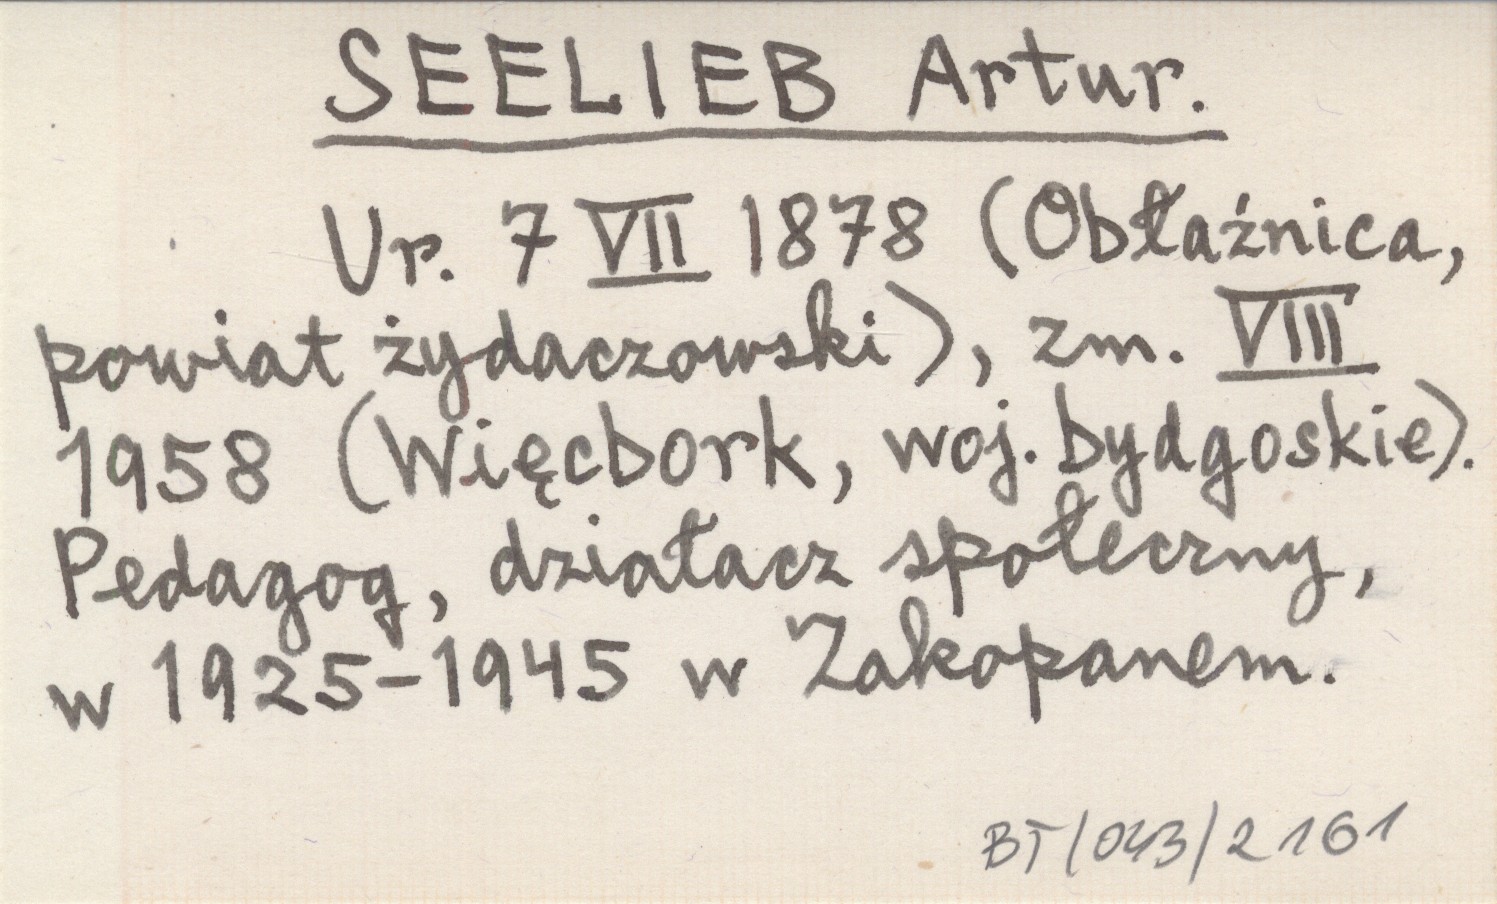 SEELIEB Artur.
Ur. 7 VII 1878 (Obłaźnica,
powiat żydaczowski), zm. VIII
1958 (Więcbork, woj. bydgoskie).
Pedagog, działacz społeczny,
w 1925-1945 w Zakopanem.
BT/043/2161